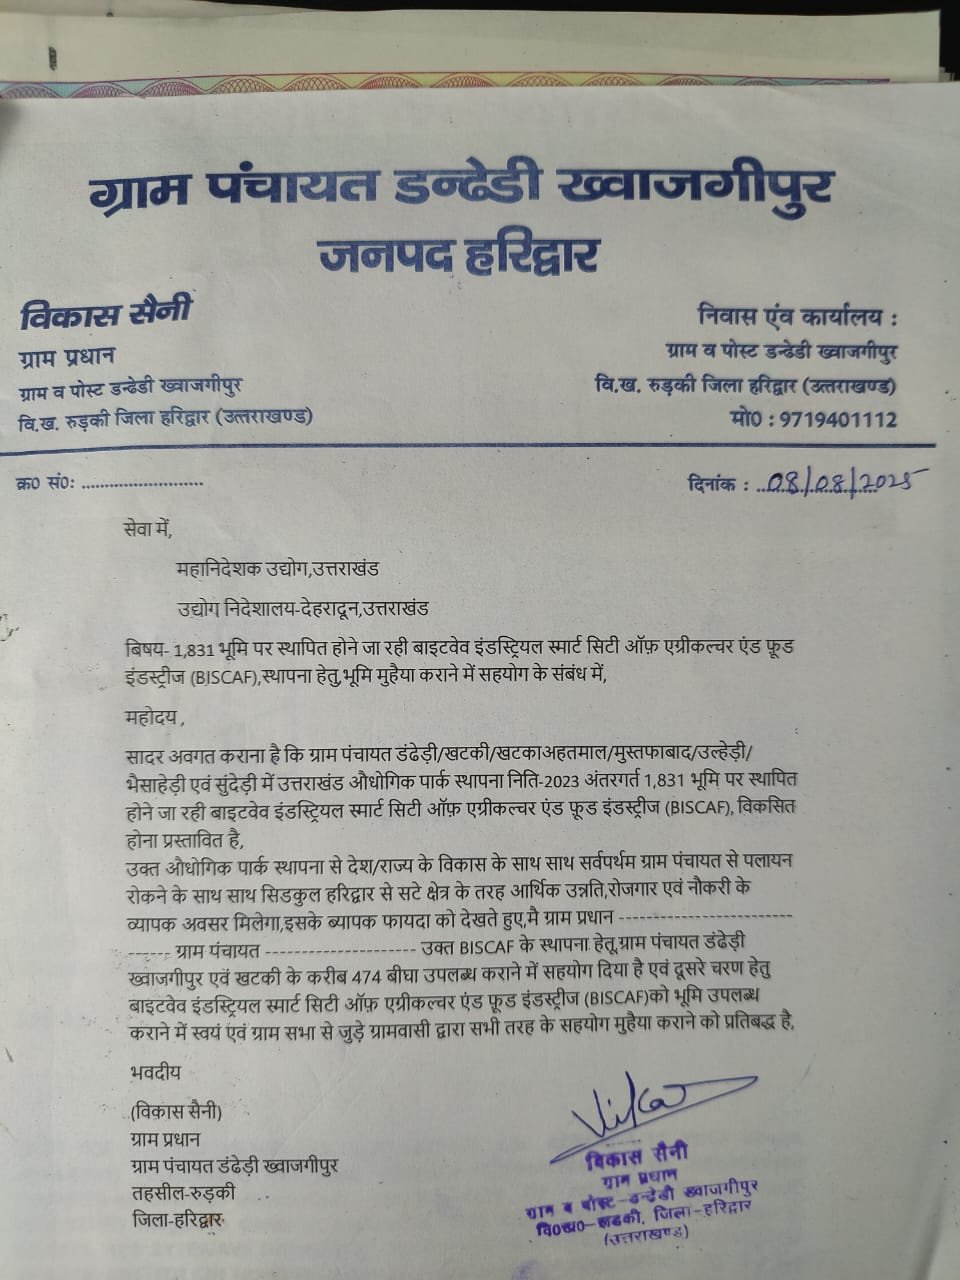 ग्राम पंचायत डन्ढेडी ख्वाजगीपुर
जनपद हरिद्वार
विकास सैनी
ग्राम प्रधान
ग्राम व पोस्ट डन्ढेडी ख्वाजगीपुर
वि.ख. रुड़की जिला हरिद्वार (उत्तराखण्ड)
निवास एंव कार्यालय :
ग्राम व पोस्ट डन्ढेडी ख्वाजगीपुर
वि.ख. रुड़की जिला हरिद्वार (उत्तराखण्ड)
मो0 : 9719401112
क्र0 सं0: ........................
दिनांक : 08/08/2025
सेवा में,
महानिदेशक उद्योग,उत्तराखंड
उद्योग निदेशालय-देहरादून,उत्तराखंड
बिषय- 1,831 भूमि पर स्थापित होने जा रही बाइटवेव इंडस्ट्रियल स्मार्ट सिटी ऑफ़ एग्रीकल्चर एंड फ़ूड
इंडस्ट्रीज (BISCAF),स्थापना हेतु,भूमि मुहैया कराने में सहयोग के संबंध में,
महोदय ,
सादर अवगत कराना है कि ग्राम पंचायत डंढेड़ी/खटकी/खटकाअहतमाल/मुस्तफाबाद/उल्हेड़ी/
भैसाहेड़ी एवं सुंदेड़ी में उत्तराखंड औधोगिक पार्क स्थापना निति-2023 अंतरगर्त 1,831 भूमि पर स्थापित
होने जा रही बाइटवेव इंडस्ट्रियल स्मार्ट सिटी ऑफ़ एग्रीकल्चर एंड फ़ूड इंडस्ट्रीज (BISCAF), विकसित
होना प्रस्तावित है,
उक्त औधोगिक पार्क स्थापना से देश/राज्य के विकास के साथ साथ सर्वपर्थम ग्राम पंचायत से पलायन
रोकने के साथ साथ सिडकुल हरिद्वार से सटे क्षेत्र के तरह आर्थिक उन्नति,रोजगार एवं नौकरी के
व्यापक अवसर मिलेगा,इसके ब्यापक फायदा को देखते हुए,मै ग्राम प्रधान --------------------------
------ ग्राम पंचायत --------------------- उक्त BISCAF के स्थापना हेतू,ग्राम पंचायत डंढेड़ी
ख्वाजगीपुर एवं खटकी के करीब 474 बीघा उपलब्ध कराने में सहयोग दिया है एवं दूसरे चरण हेतु
बाइटवेव इंडस्ट्रियल स्मार्ट सिटी ऑफ़ एग्रीकल्चर एंड फ़ूड इंडस्ट्रीज (BISCAF)को भूमि उपलब्ध
कराने में स्वयं एवं ग्राम सभा से जुड़े ग्रामवासी द्वारा सभी तरह के सहयोग मुहैया कराने को प्रतिबद्ध है,
भवदीय
(विकास सैनी)
ग्राम प्रधान
ग्राम पंचायत डंढेड़ी ख्वाजगीपुर
तहसील-रुड़की
जिला-हरिद्वार
विकास सैनी
ग्राम प्रधान
ग्राम व पोस्ट-डन्ढेडी ख्वाजगीपुर
वि0ख0-रूडकी, जिला-हरिद्वार
(उत्तराखण्ड)